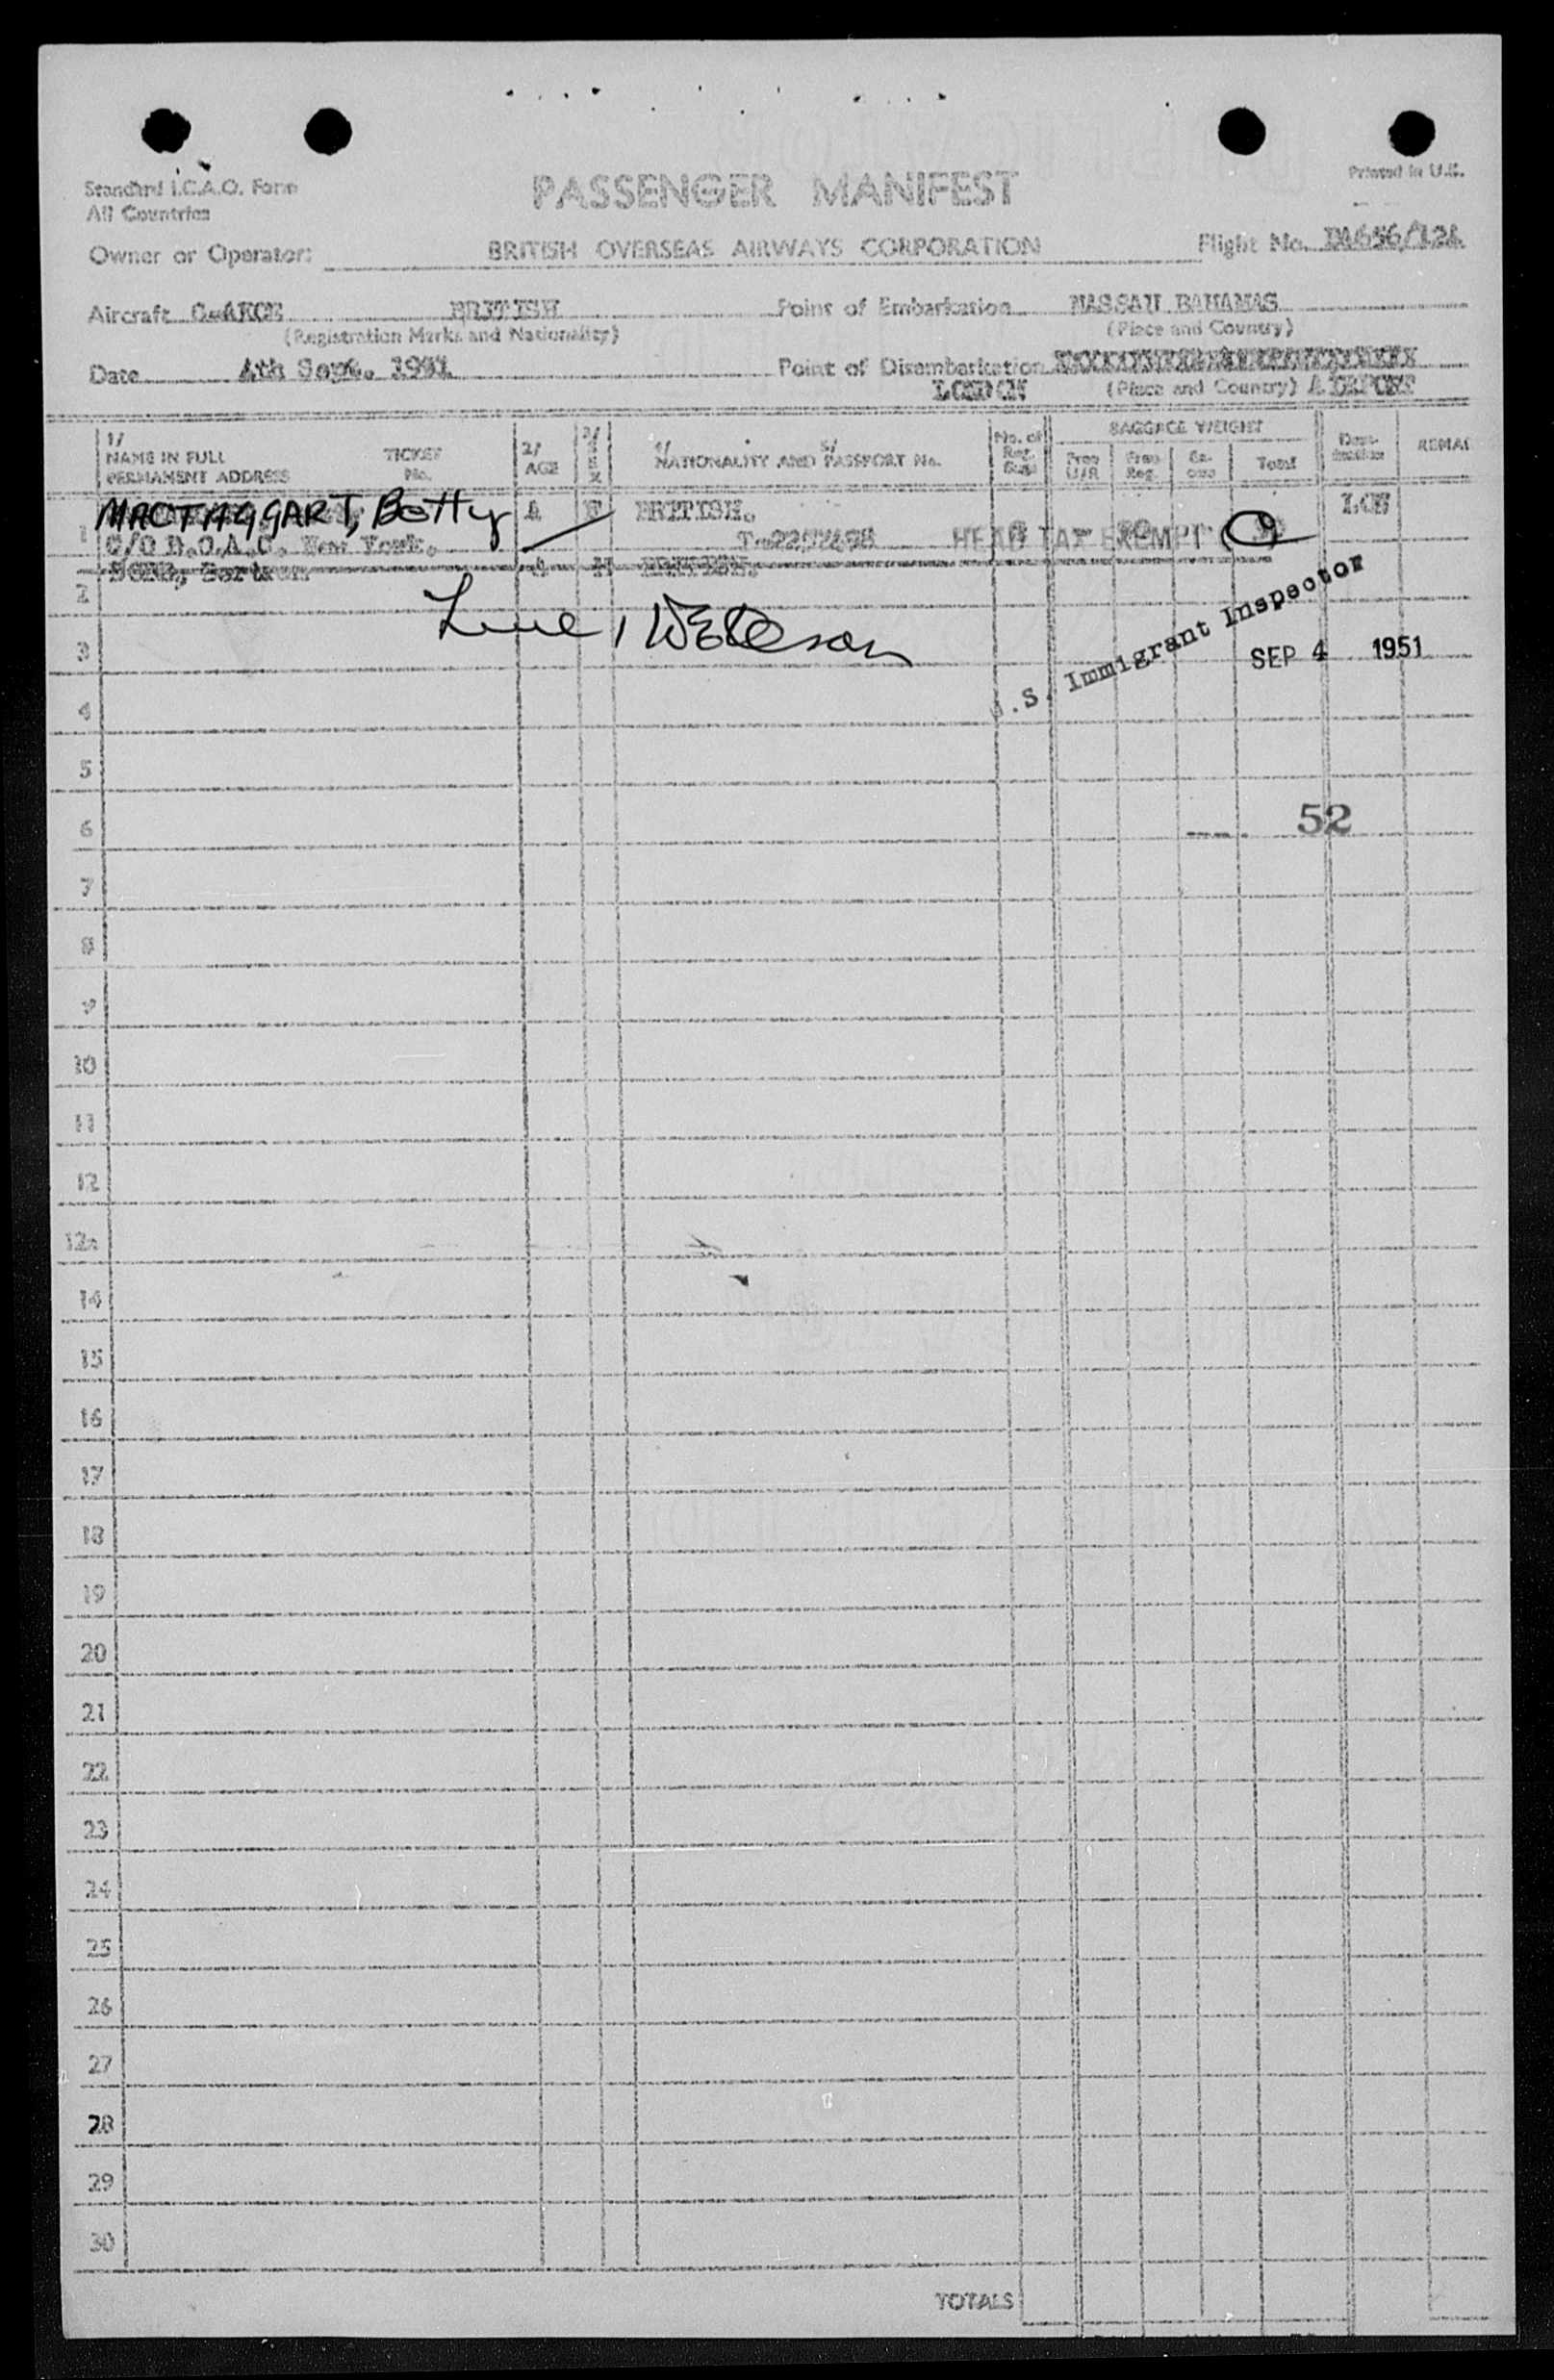 Standard I.C.A.O. Form
All Countries
PASSENGER MANIFEST
Printed in U.K.
Owner or Operator: BRITISH OVERSEAS AIRWAYS CORPORATION Flight No.
Aircraft BRITISH Point of Embarkation NASSAU BAHAMAS
(Registration Marks and Nationality) (Place and Country)
Date 4th Sept. 1951 Point of Disembarkation
LONDON (Place and Country) AIRPORT
1/ NAME IN FULL PERMANENT ADDRESS TICKET No. 2/ AGE 3/ SEX 4/ 5/ NATIONALITY AND PASSPORT No. No. of BAGGAGE WEIGHT Free U/R Free Reg. Total Dest- ination REMAR
1 MACTAGGART, Betty A F BRITISH. LON
C/O B.O.A.C. New York. HEAD TAX EXEMPT
2 M BRITISH.
3 Line 1
.S. Immigrant Inspector
SEP 4 1951
4
5
6 52
7
8
9
10
11
12
12A
14
15
16
17
18
19
20
21
22
23
24
25
26
27
28
29
30
TOTALS